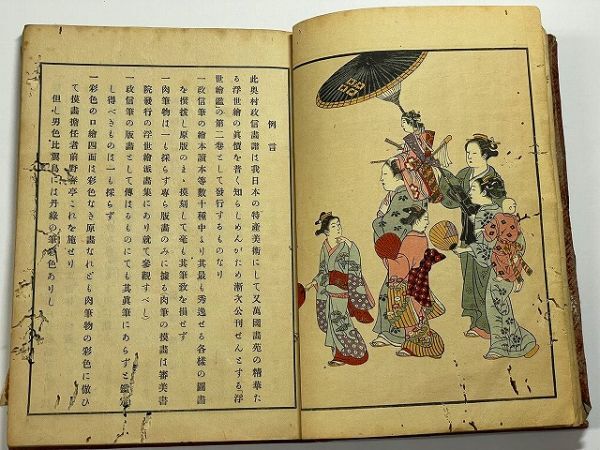 例言
此奥村政信畫譜は我日本の特產美術にして又萬國畫苑の精華た
る浮世繪の眞價を普く知らしめんがため漸次公刊せんとする浮
世繪鑑の第二卷として發行するものなり
一政信筆の繪本讀本等數十種中より其最も秀逸せる各樣の圖畫
を撰拔し原版のまゝ摸刻して毫も其筆致を損せず
一肉筆物は一も採らず專ら版畫のみに據る肉筆の摸畫は審美書
院發行の浮世繪派畫集にあり就て參觀すべし
一政信筆の版畫として傳はるものにても其眞筆にあらずと鑑定
し得べきものは一も採らず
一彩色の口繪四面は彩色なき原畫なれども肉筆物の彩色に倣ひ
て摸畫擔任者前野春亭これを施せり
但し男色比翼鳥には丹綠の筆彩色ありし